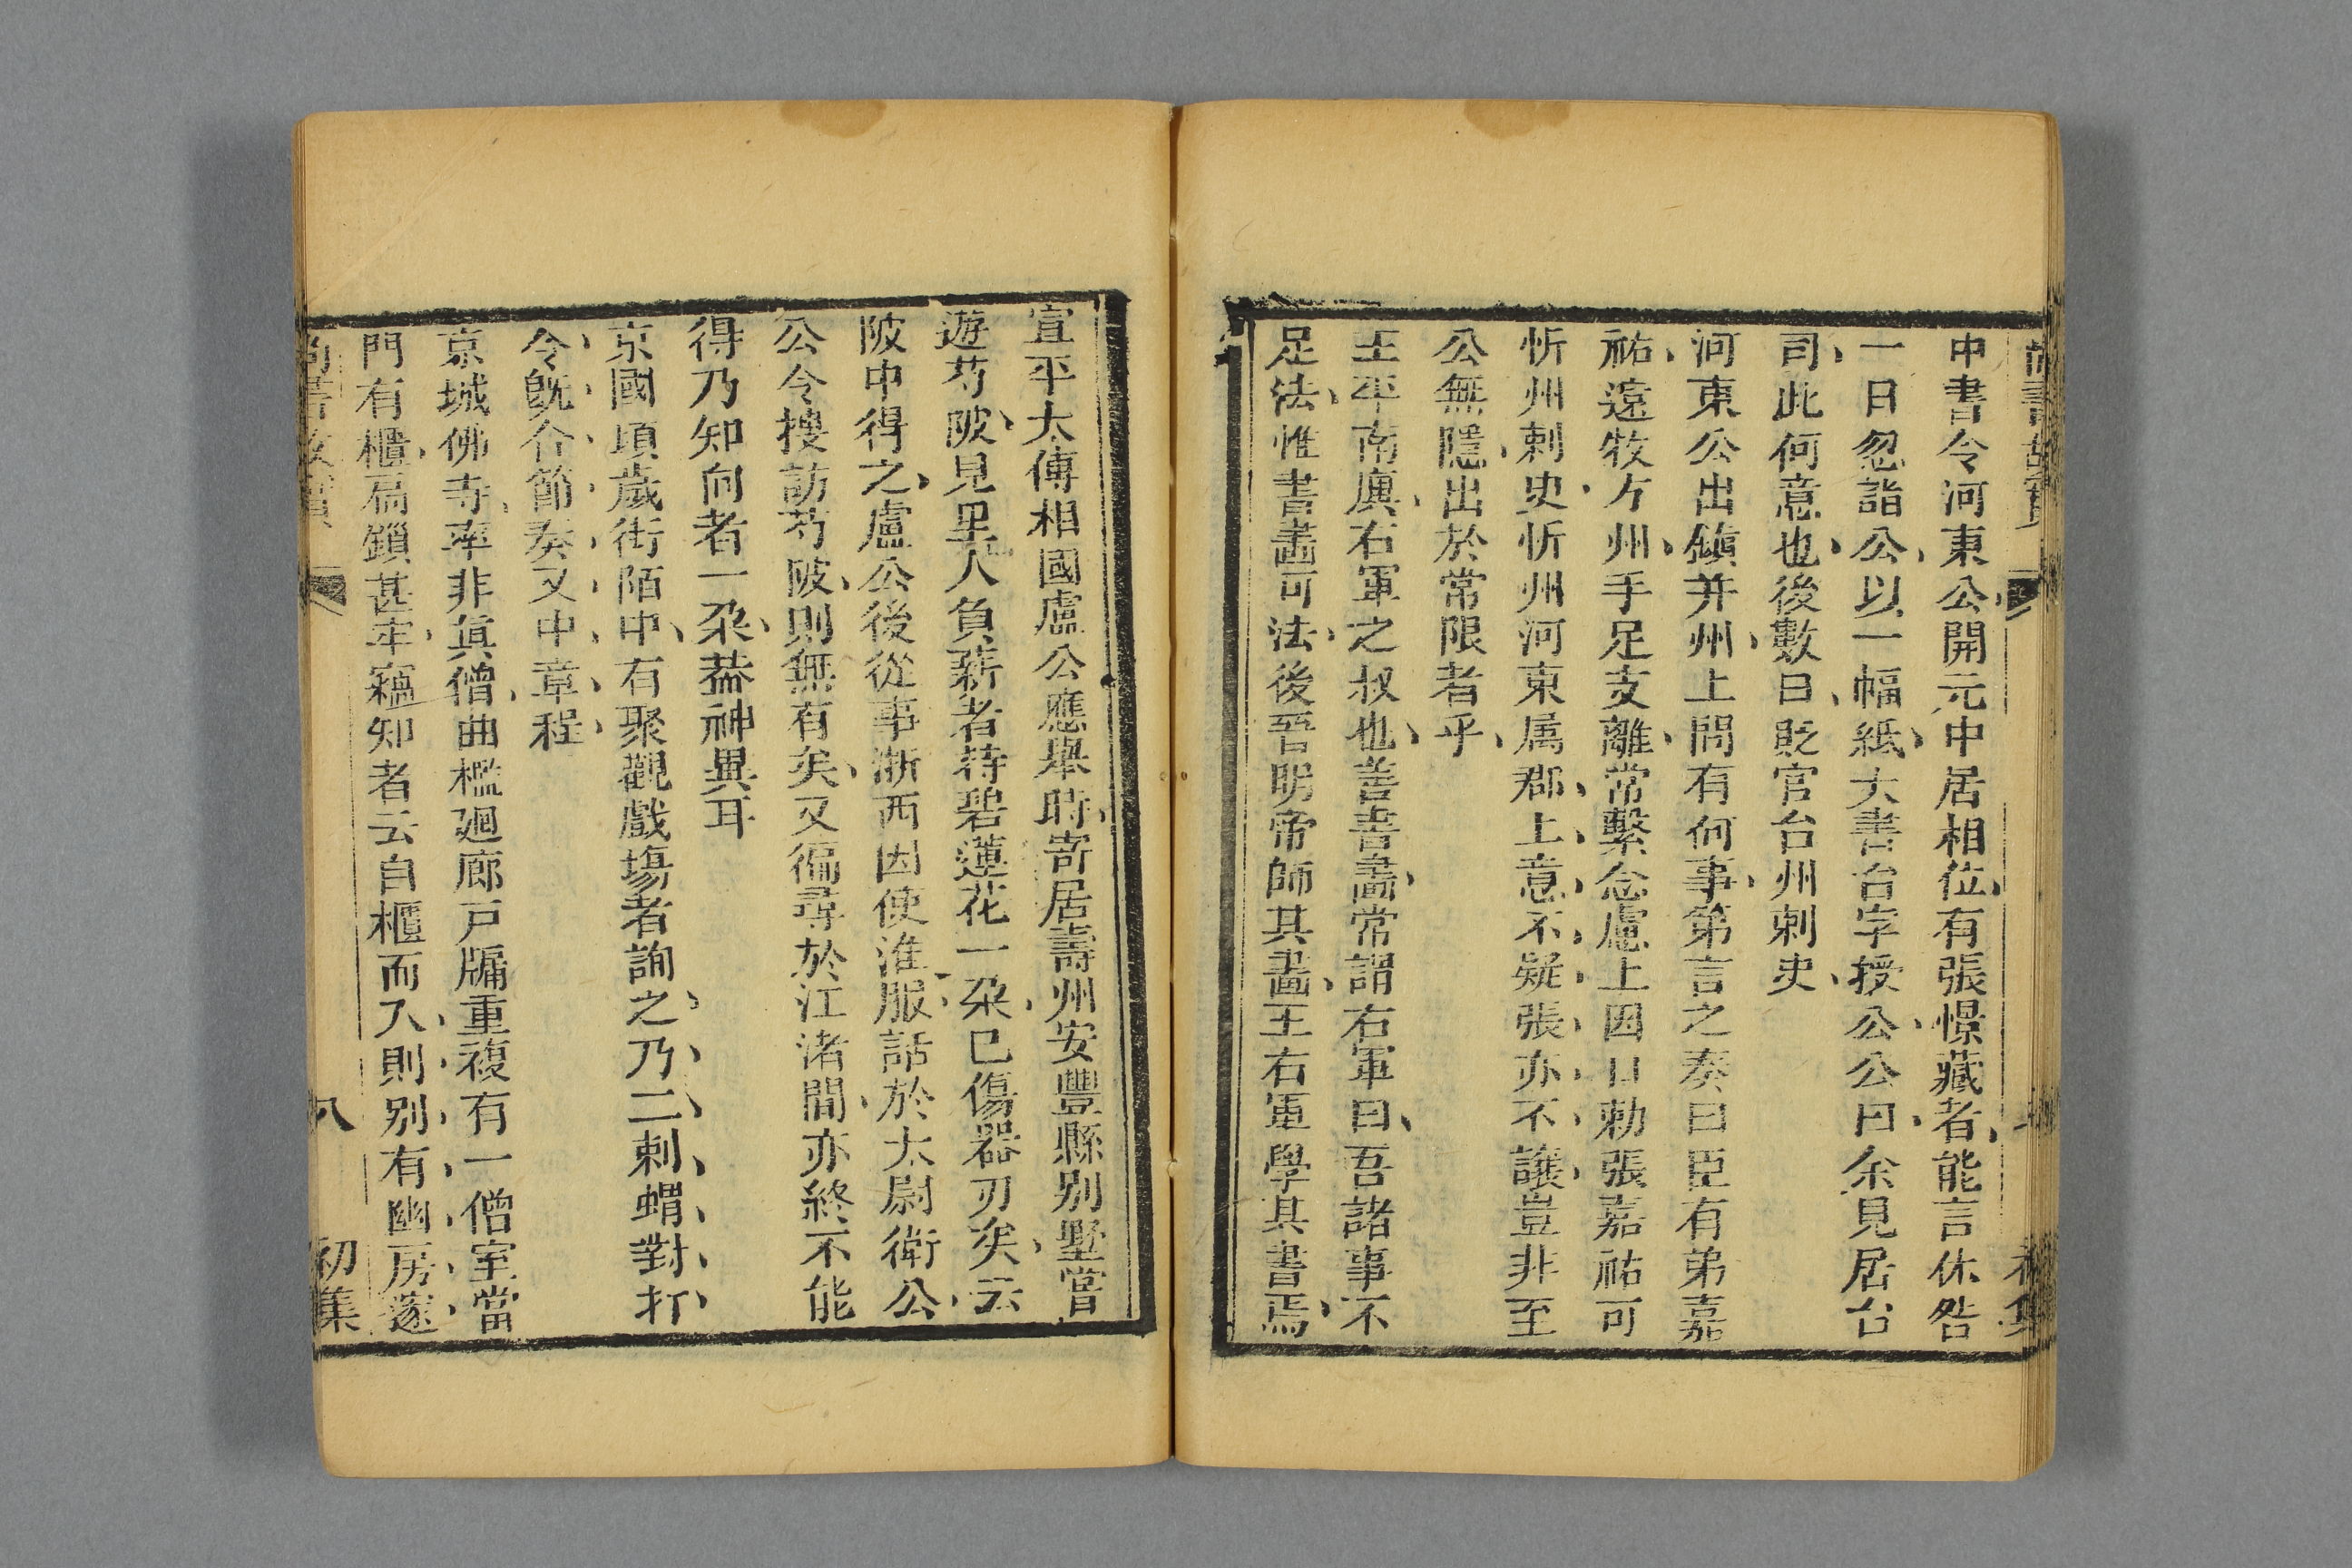 中書令河東公開元中居相位有張憬藏者能言休咎
一日忽詣公以一幅紙大書台字授公公曰余見居台
司此何意也後數日貶官台州刺史
河東公出鎮并州上問有何事第言之奏曰臣有弟嘉
祐遠牧方州手足支離常繫念慮上因口勅張嘉祐可
忻州刺史忻州河東属郡上意不疑張亦不讓豈非至
公無隱出於常限者乎
王平南廙右軍之叔也善書畵常謂右軍曰吾諸事不
足法惟書畵可法後吾明帝師其畵王右軍學其書焉
宣平太傅相國盧公應舉時寄居壽州安豐縣别墅嘗
遊芍陂見里人負薪者持碧蓮花一朶已傷器刃矣云
陂中得之盧公後從事浙西因使淮服話於太尉衛公
公令搜訪芍陂則無有矣又徧尋於江渚間亦終不能
得乃知向者一朶葢神異耳
京國頃歲街陌中有聚觀戲塲者詢之乃二刺蝟對打
令既合節奏又中章程
京城佛寺率非眞僧曲檻廻廊戸牖重複有一僧室當
門有櫃扃鎖甚牢竊知者云自櫃而入則别有幽房邃
八
初集